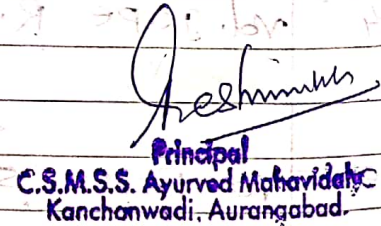 Principal
C.S.M.S.S. Ayurved Mahavidalc
Kanchanwadi, Aurangabad.